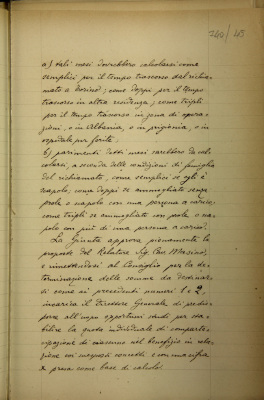 740/43
a) tali mesi dovrebbero calcolarsi come
semplici per il tempo trascorso dal richia-
mato a Torino; come doppi per il tempo
trascorso in altra residenza; come tripli
per il tempo trascorso in zona di opera-
zioni, o in Albania, o in prigionia, o in
ospedale per ferite.
b) parimenti detti mesi sarebbero da cal-
colarsi, a seconda delle condizioni di famiglia
del richiamato, come semplici se egli è
scapolo, come doppi se ammogliato senza
prole o scapolo con una persona a carico;
come tripli se ammogliato con prole o sca-
polo con più di una persona a carico.
La Giunta approva pienamente le
proposte del Relatore Sig. Cav.
e rimettendosi al Consiglio per la de-
terminazione delle somme da destinar-
si come ai precedenti numeri 1 e 2,
incarica il Direttore Generale di predis-
porre all'uopo opportuni studi per sta-
bilire la quota individuale di comparte-
cipazione di ciascuno nel beneficio in rela-
zione coi suesposti concetti e con una cifra
presa come base di calcolo.